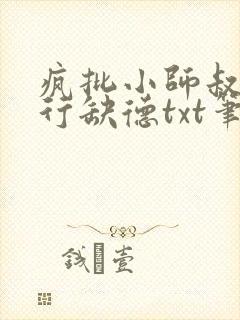 疯批小师叔
行缺德txt笔
钱 壹